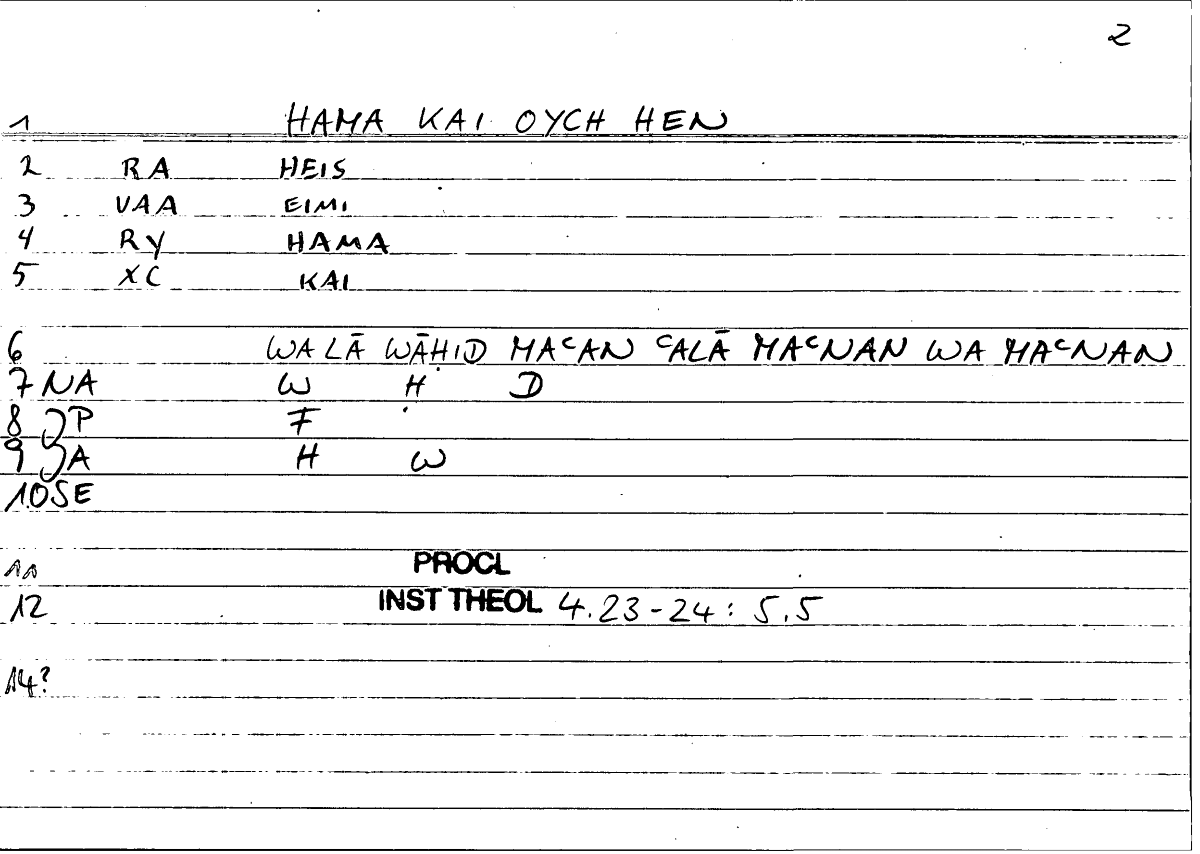 2
1 HAMA KAI OYCH HEN
2 RA HEIS
3 VAA EIMI
4 RY HAMA
5 XC KAI
6 WALĀ WĀḤID MAᶜAN ᶜALĀ MAᶜNAN WA MAᶜNAN
7 NA W Ḥ D
8 JP F
9 JA H W
10 SE
11 PROCL
12 INST THEOL 4.23-24: 5.5
14?